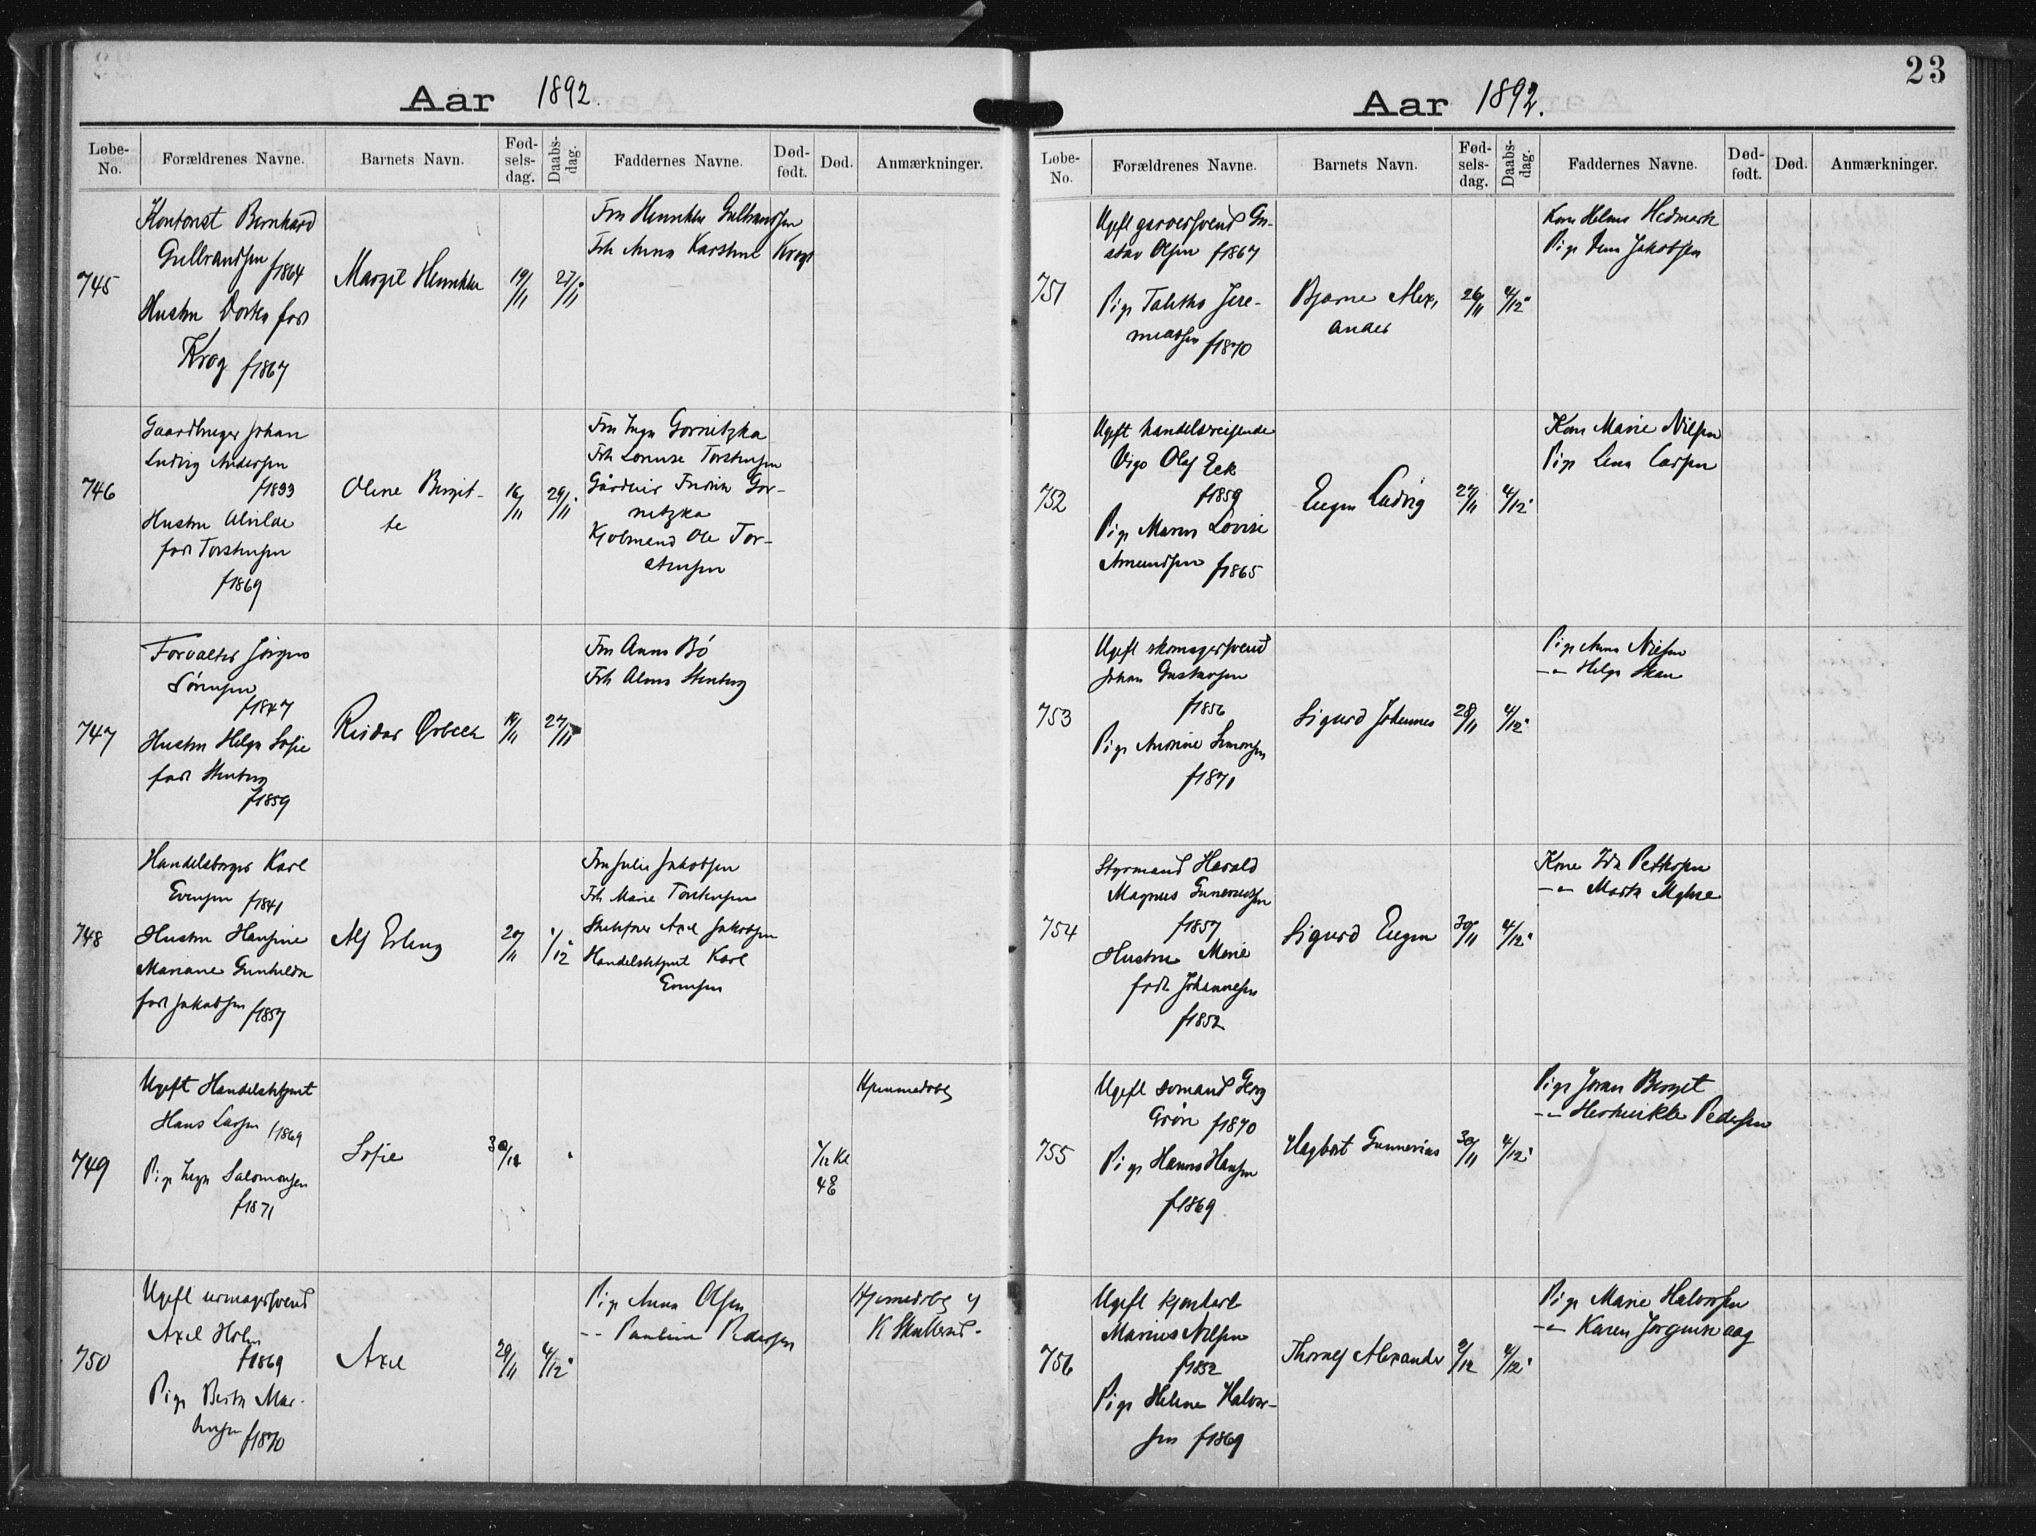 Aar 1892.
Løbe-No. Forældrenes Navne. Barnets Navn. Fødselsdag. Daabsdag. Faddernes Navne. Dødfødt. Død. Anmærkninger.
745
Kontorist Bernhard
Gulbrandsen f1864
Hustru Dorthea født
Krog f1867
Margit Henrikke
19/11
27/11
Fru Henrikke Gulbrandsen
Frk Anna Karstine Krogh
746
Gaardbruger Johan
Ludvig Andersen
f1833
Hustru Alvilde
født Torstensen
f1869
Oline Bergit-
te
16/11
29/11
Fru Inga Gornitzka
Frk Lovise Torstensen
Gårdeier Gor-
nitzka
Ole Tor-
stensen
747
Forvalter Jørgen
Sørensen
f1847
Hustru Helga Sofie
født Stenberg
f1859
Reidar Ørbeck
19/11
27/11
Fru Anna Bö
Frk Alma Stenberg
748
Handelsborger Karl
Evensen f1841
Hustru Hansine
Mariane Gunhilde
født Jakobsen f1857
Alf Erling
20/11
1/12
Fru Julie Jakobsen
Frk Marie Torstensen
Axel Jakobsen
Handelsbetjent Karl
Evensen
749
Ugift Handelsbetjent
Hans Larsen f1869
Pige Inga Salomonsen
f1871
Sofie
30/12
1/12 Kl
4 E
Hjemmedøbt
750
Ugift urmagersvend
Axel Holm
f1869
Pige Berta Mar-
tinsen f1870
Axel
29/11
4/12
Pige Anna Olsen
-"- Pauline Pedersen
Hjemmedøbt af
K Skullerud.
23
Aar 1892.
Løbe-No. Forældrenes Navne. Barnets Navn. Fødselsdag. Daabsdag. Faddernes Navne. Dødfødt. Død. Anmærkninger.
751
Ugift garversvend Gu-
stav Olsen f1867
Pige Talitha Jere-
miassen f1870
Bjarne Alex-
ander
26/11
4/12
Kone Helma Hedmark
Pige Jakobsen
752
Ugift handelsreisende
Vigo Olaf Eek
f1859
Pige Maren Lovise
Amundsen f1865
Eugen Ludvig
27/11
4/12
Kone Marie Nilsen
Pige Lena Larsen
753
Ugift skomagersvend
Johan Gustavsen
f1856
Pige Antonine Simonsen
f1871
Sigurd Johannes
28/11
4/12
Pige Anna Nilsen
-"- Helga Skau
754
Styrmand Harald
Magnus Gunerussen
f1857
Hustru Marie
født Johannesen
f1852
Sigurd Eugen
30/11
4/12
Kone Ida Pettersen
-"- Marta Myhre
755
Ugift sømand Georg
Grøn f1870
Pige Hanna Hansen
f1869
Hagbart Gunnerius
30/11
4/12
Pige Joran Berget
-"- Herhenrikke Pedersen
756
Ugift kjørekarl
Marius Nilsen
f1852
Pige Helene Halvor-
sen f1869
Thoralf Alexander
2/12
4/12
Pige Marie Halvorsen
-"- Karen Jørgine Aag